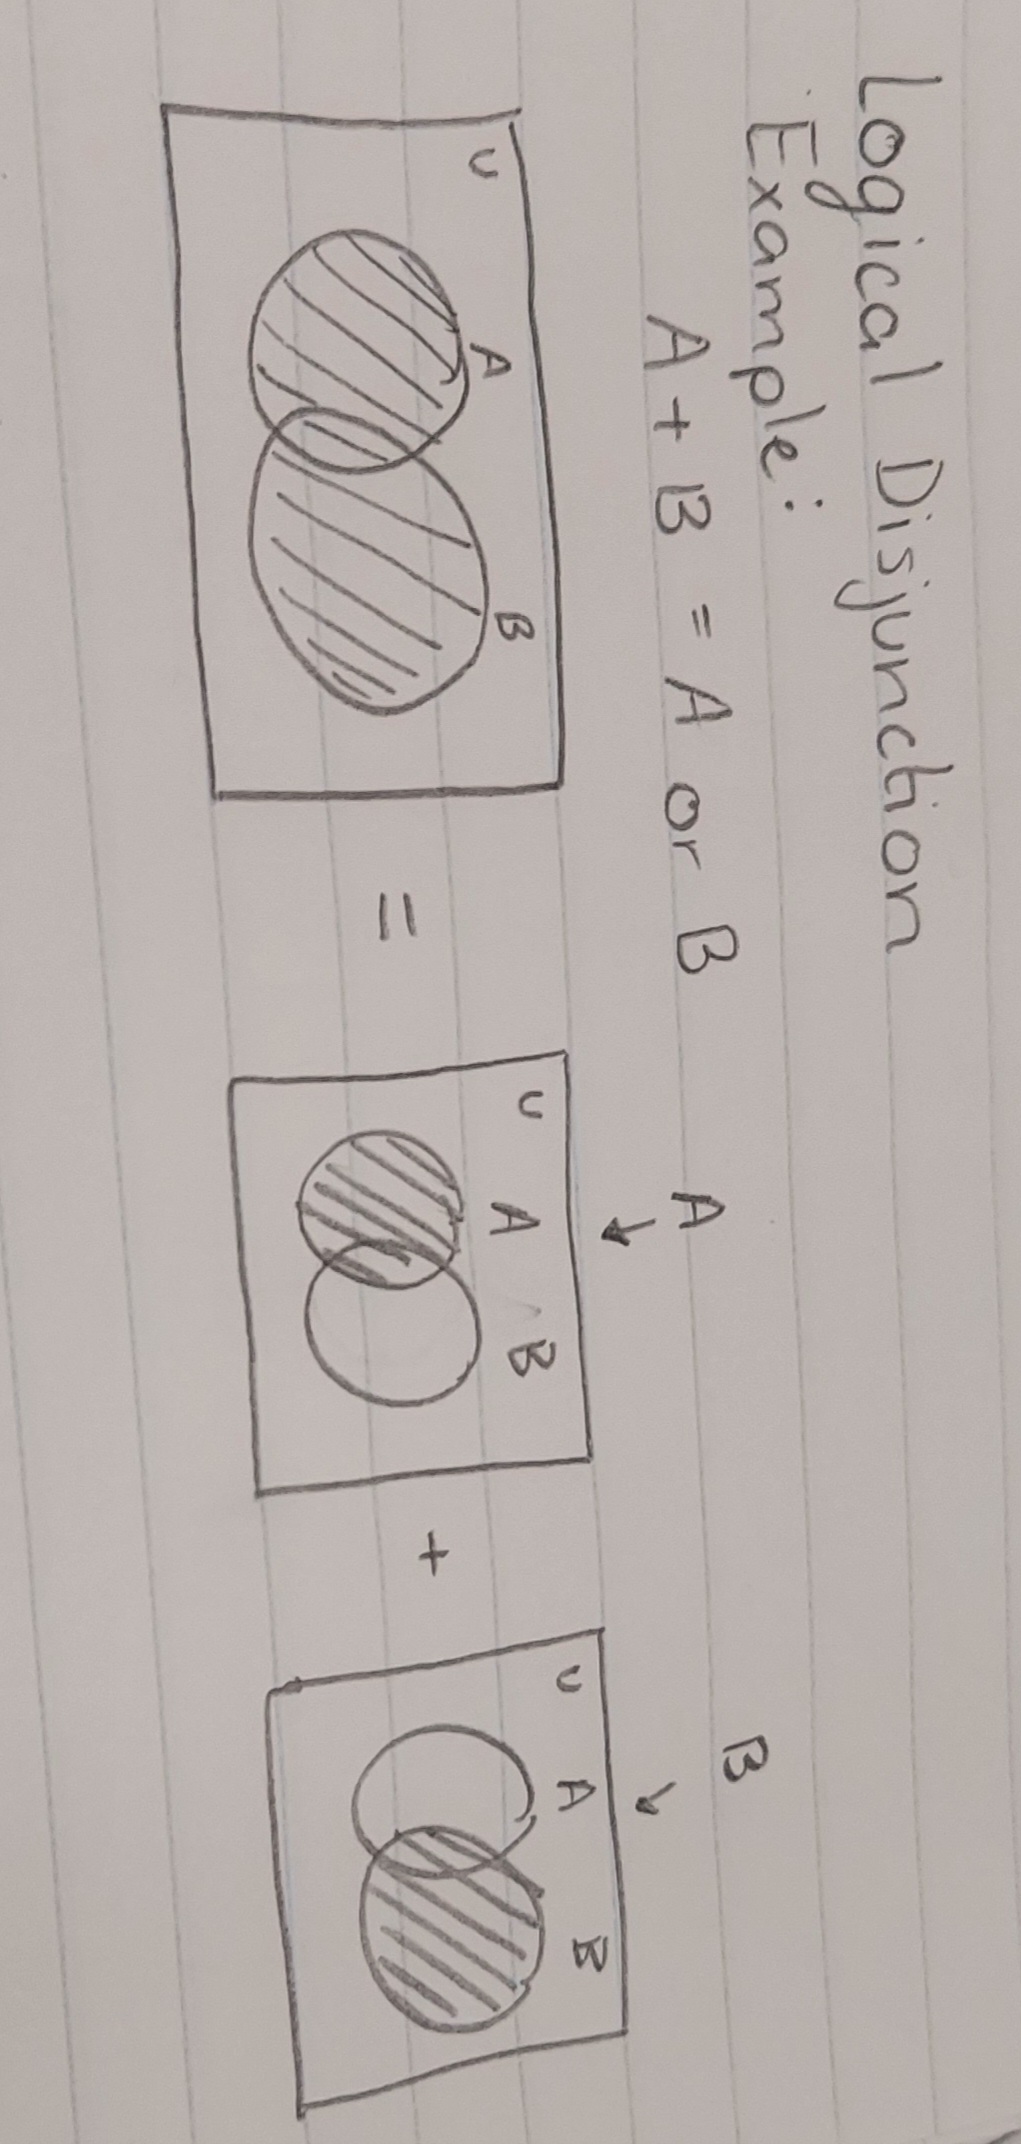 Logical Disjunction
Example:
A + B = A or B
A
B
U A B
=
U A B
+
U A B